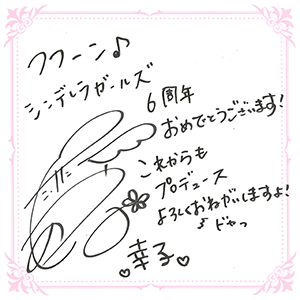 フフーン♪
シンデレラガールズ
6周年
おめでとうございます!
これからも
プロデュース
よろしくおねがいしますよ!
♪ドヤっ
♡幸子♡